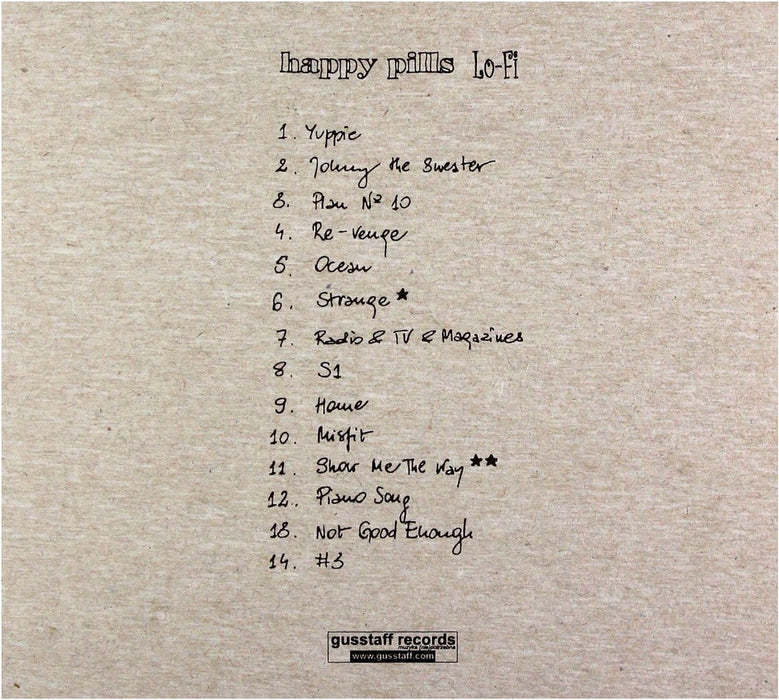 happy pills Lo-Fi
1. Yuppie
2. Johnny the Swester
3. Plan Nº 10
4. Re-venge
5. Ocean
6. Strange ★
7. Radio & TV & Magazines
8. S1
9. Home
10. Misfit
11. Show Me The Way ★★
12. Piano Song
13. Not Good Enough
14. #3
gusstaff records
muzyka (nie)potrzebna
www.gusstaff.com